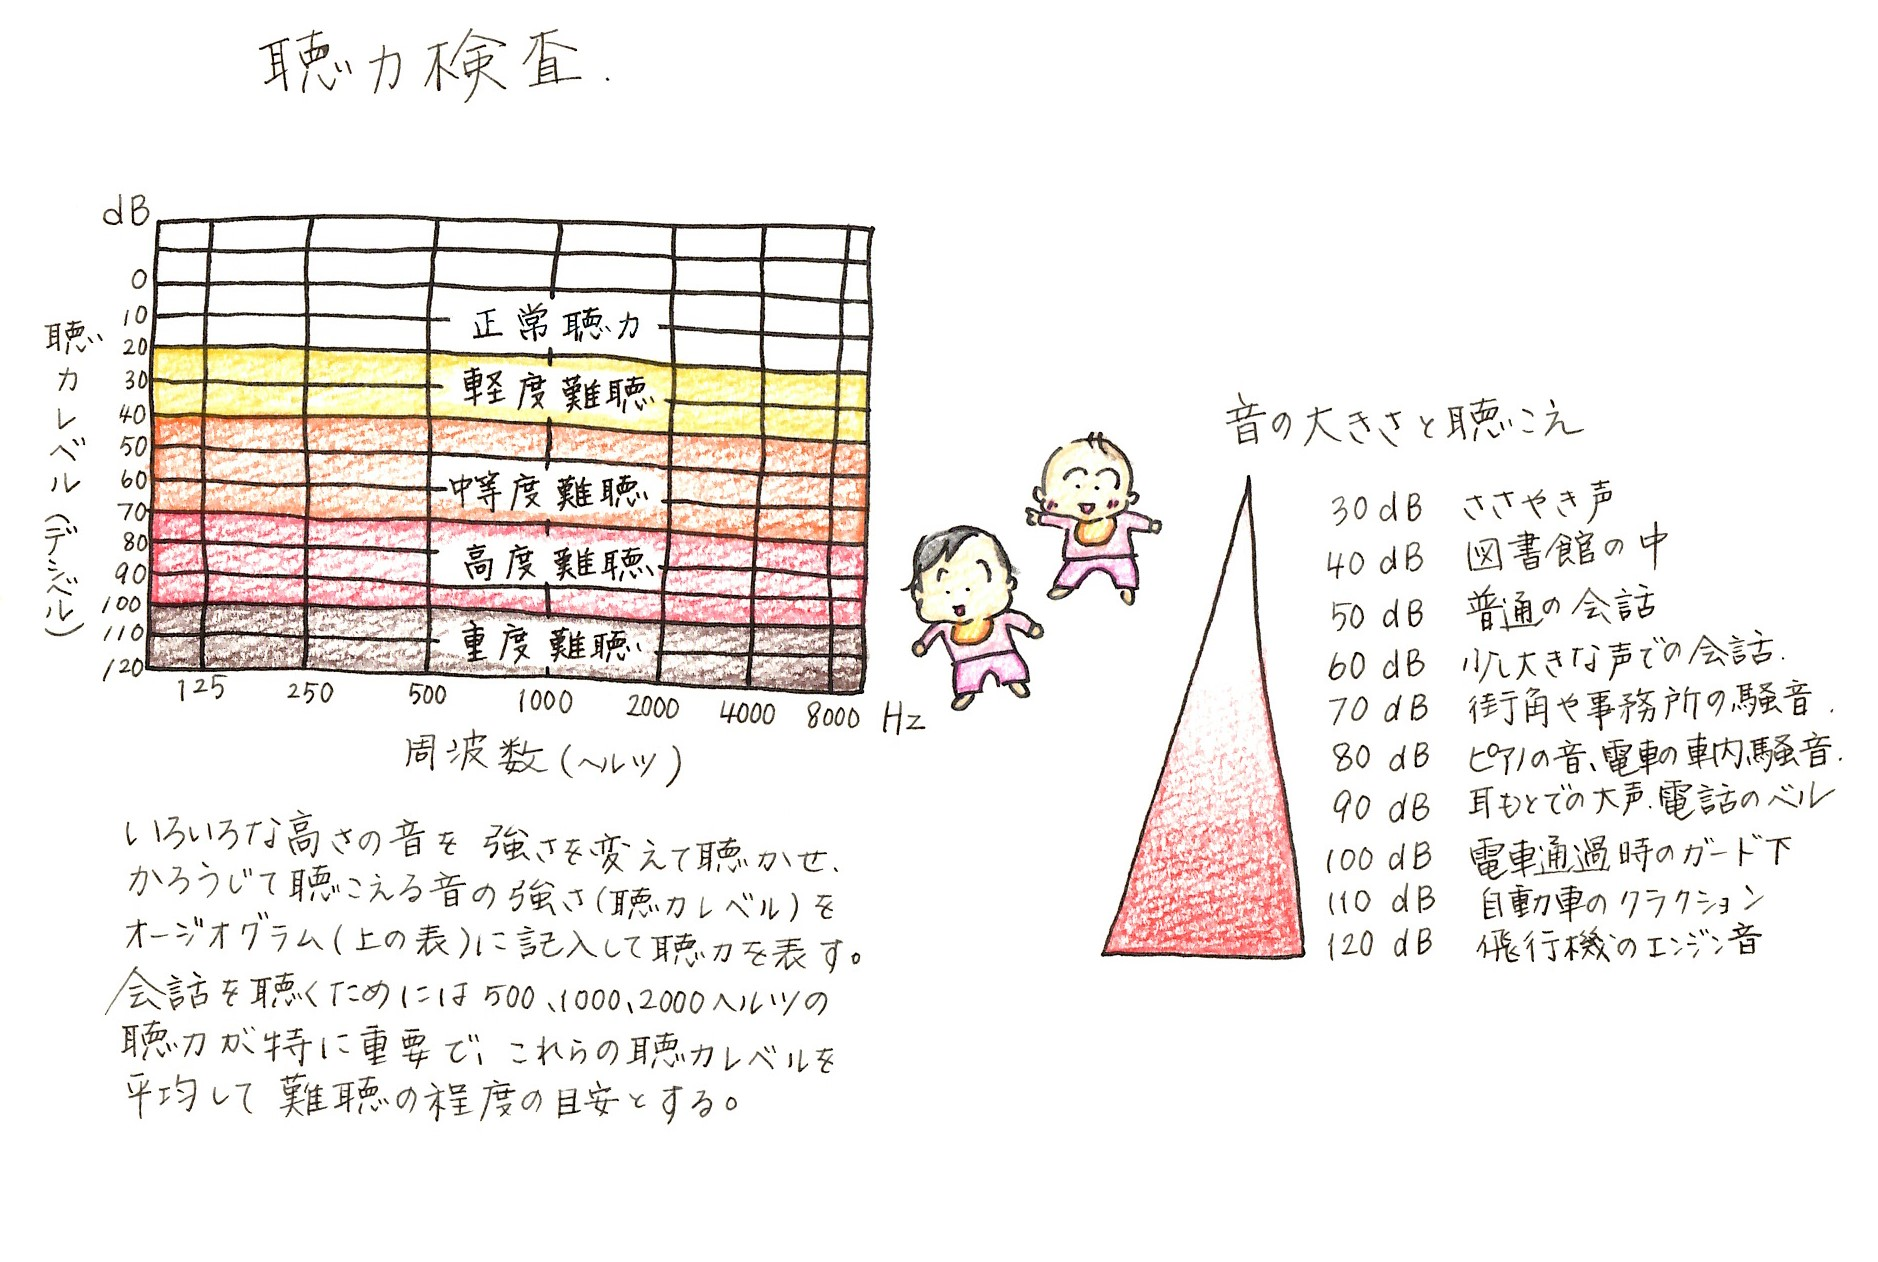 聴力検査.
dB
0
10
20
30
40
50
60
70
80
90
100
110
120
聴力レベル(デシベル)
正常聴力
軽度難聴
中等度難聴
高度難聴
重度難聴
125 250 500 1000 2000 4000 8000 Hz
周波数(ヘルツ)
いろいろな高さの音を強さを変えて聴かせ、
かろうじて聴こえる音の強さ(聴力レベル)を
オージオグラム(上の表)に記入して聴力を表す。
会話を聴くためには500、1000、2000ヘルツの
聴力が特に重要で、これらの聴力レベルを
平均して難聴の程度の目安とする。
音の大きさと聴こえ
30 dB ささやき声
40 dB 図書館の中
50 dB 普通の会話
60 dB 少し大きな声での会話.
70 dB 街角や事務所の騒音.
80 dB ピアノの音、電車の車内騒音.
90 dB 耳もとでの大声.電話のベル
100 dB 電車通過時のガード下
110 dB 自動車のクラクション
120 dB 飛行機のエンジン音